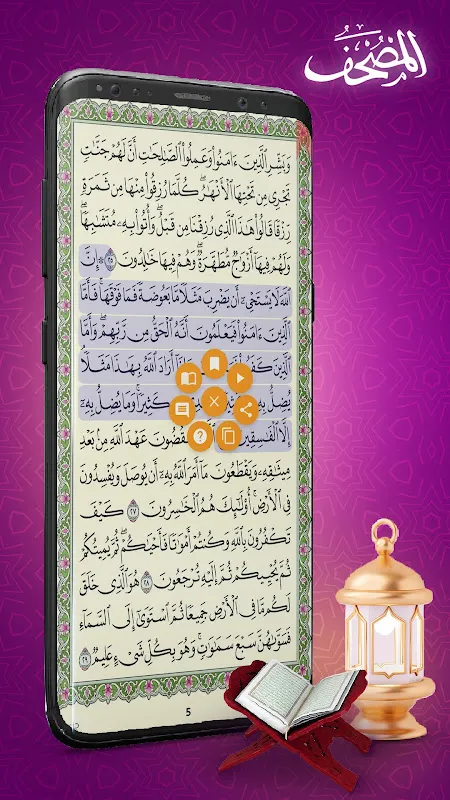 المصحف
وَبَشِّرِ الَّذِينَ ءَامَنُوا وَعَمِلُوا الصَّٰلِحَٰتِ أَنَّ لَهُمْ جَنَّٰتٍ
تَجْرِي مِن تَحْتِهَا الْأَنْهَٰرُ ۖ كُلَّمَا رُزِقُوا مِنْهَا مِن ثَمَرَةٍ
رِّزْقًا قَالُوا هَٰذَا الَّذِي رُزِقْنَا مِن قَبْلُ ۖ وَأُتُوا بِهِ مُتَشَٰبِهًا ۖ
وَلَهُمْ فِيهَا أَزْوَٰجٌ مُّطَهَّرَةٌ ۖ وَهُمْ فِيهَا خَٰلِدُونَ ٢٥ ۞ إِنَّ
اللَّهَ لَا يَسْتَحْيِ أَن يَضْرِبَ مَثَلًا مَّا بَعُوضَةً فَمَا فَوْقَهَا ۚ فَأَمَّا
الَّذِينَ ءَامَنُوا فَيَعْلَمُونَ أَنَّهُ الْحَقُّ مِن رَّبِّهِمْ ۖ وَأَمَّا
الَّذِينَ أَرَادَ اللَّهُ بِهَٰذَا مَثَلًا ۘ
يُضِلُّ كَثِيرًا ۚ وَمَا يُضِلُّ بِهِ
إِلَّا الْفَٰسِقِينَ يَنقُضُونَ عَهْدَ اللَّهِ مِن بَعْدِ
مِيثَٰقِهِ وَيَقْطَعُونَ مَا أَمَرَ اللَّهُ بِهِ أَن يُوصَلَ وَيُفْسِدُونَ
فِي الْأَرْضِ ۚ أُولَٰئِكَ هُمُ الْخَٰسِرُونَ ٢٧ كَيْفَ
تَكْفُرُونَ بِاللَّهِ وَكُنتُمْ أَمْوَٰتًا فَأَحْيَٰكُمْ ۖ ثُمَّ يُمِيتُكُمْ
ثُمَّ يُحْيِيكُمْ ثُمَّ إِلَيْهِ تُرْجَعُونَ ٢٨ هُوَ الَّذِي خَلَقَ
لَكُم مَّا فِي الْأَرْضِ جَمِيعًا ثُمَّ اسْتَوَىٰ إِلَى السَّمَاءِ
فَسَوَّىٰهُنَّ سَبْعَ سَمَٰوَٰتٍ ۚ وَهُوَ بِكُلِّ شَيْءٍ عَلِيمٌ ٢٩
5